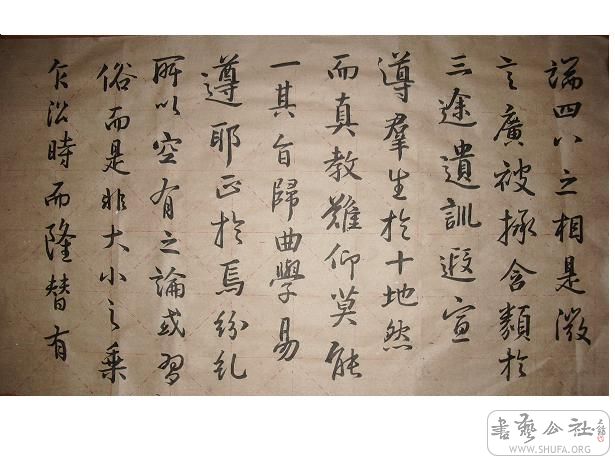 端四八之相是微
言廣被拯含類於
三途遺訓遐宣
導羣生於十地然
而真教難仰莫能
一其旨歸曲學易
遵耶正於焉紛糺
所以空有之論或習
俗而是非大小之乘
乍沿時而隆替有
書藝公社
WWW.SHUFA.ORG